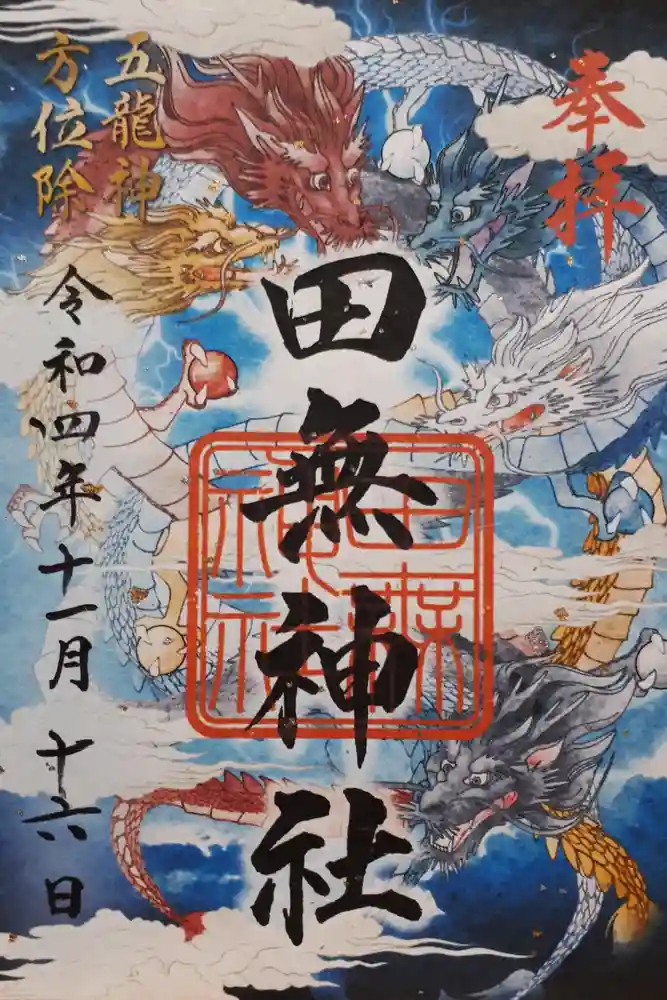 奉拝
田無神社
五龍神
方位除
令和四年十一月十六日